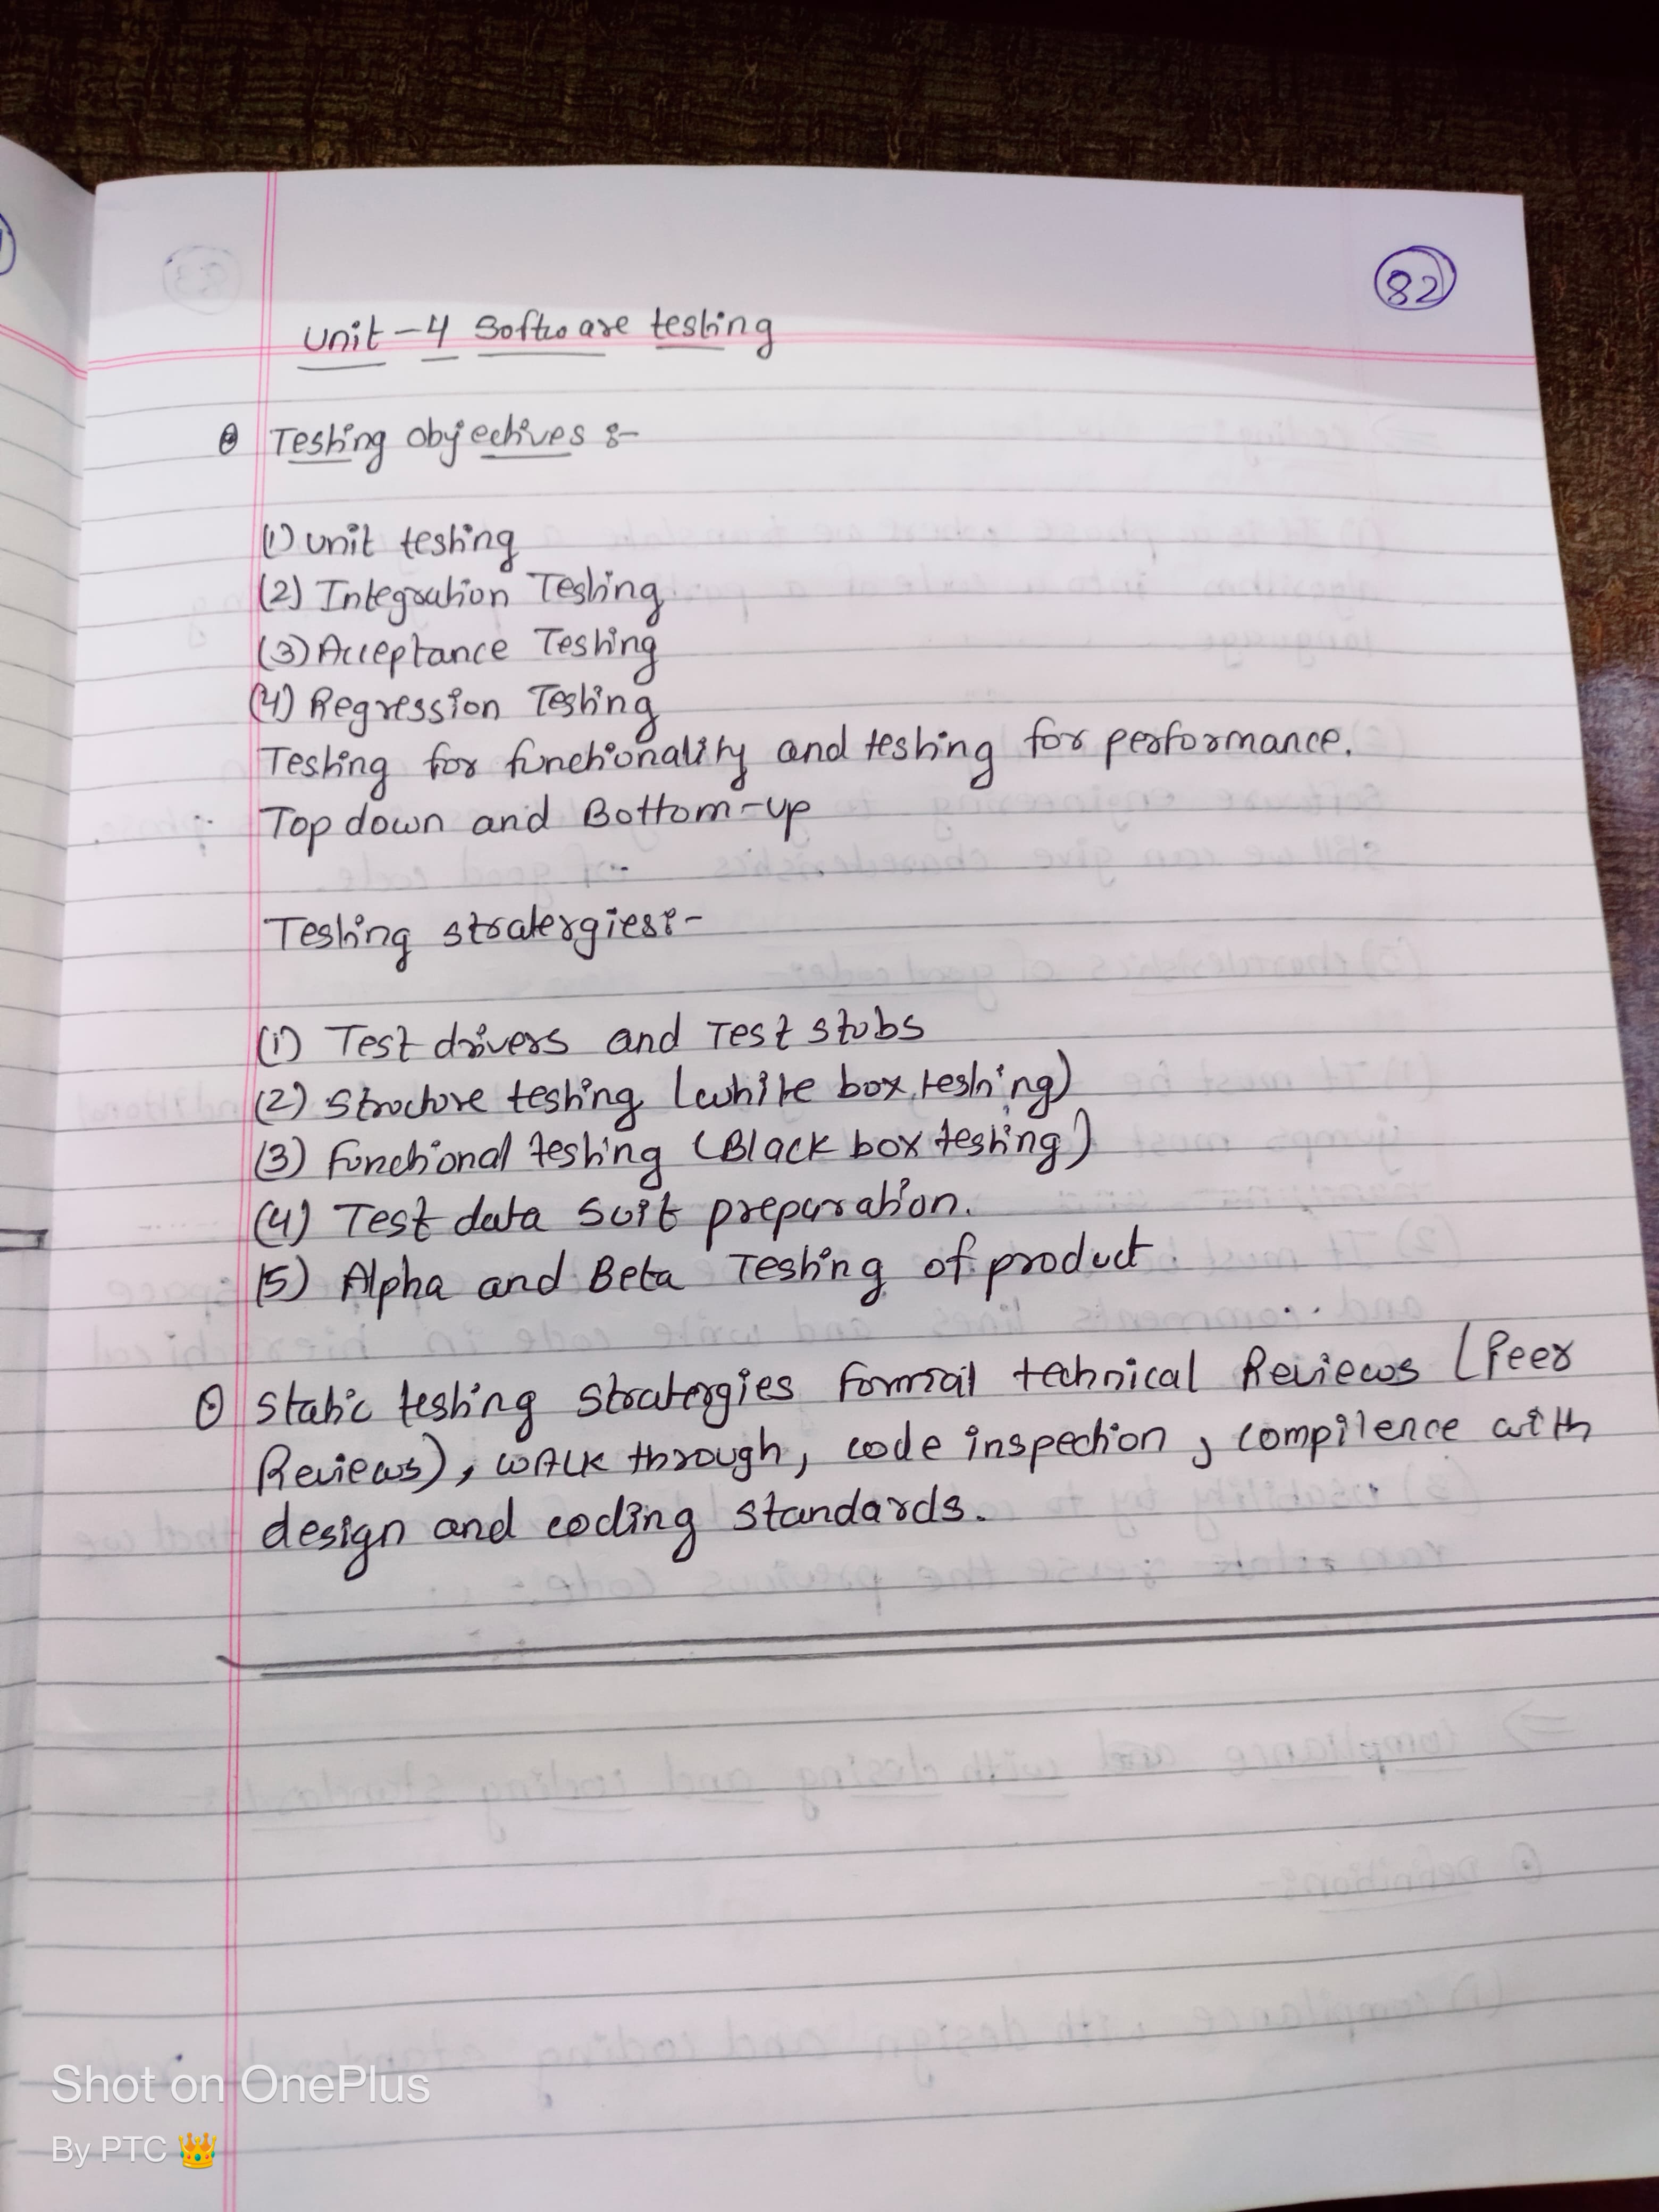 82
Unit - 4 Software testing
Testing objectives :-
(1) Unit testing
(2) Integration Testing
(3) Acceptance Testing
(4) Regression Testing
Testing for functionality and testing for performance.
Top down and Bottom-up
Testing stratergies:-
(1) Test drivers and Test stubs
(2) Structure testing (white box testing)
(3) functional testing (Black box testing)
(4) Test data suit preparation.
(5) Alpha and Beta Testing of product.
Static testing stratergies formal technical Reviews (Peer
Reviews), walk through, code inspection, compilence with
design and coding standards.
Shot on OnePlus
By PTC 👑